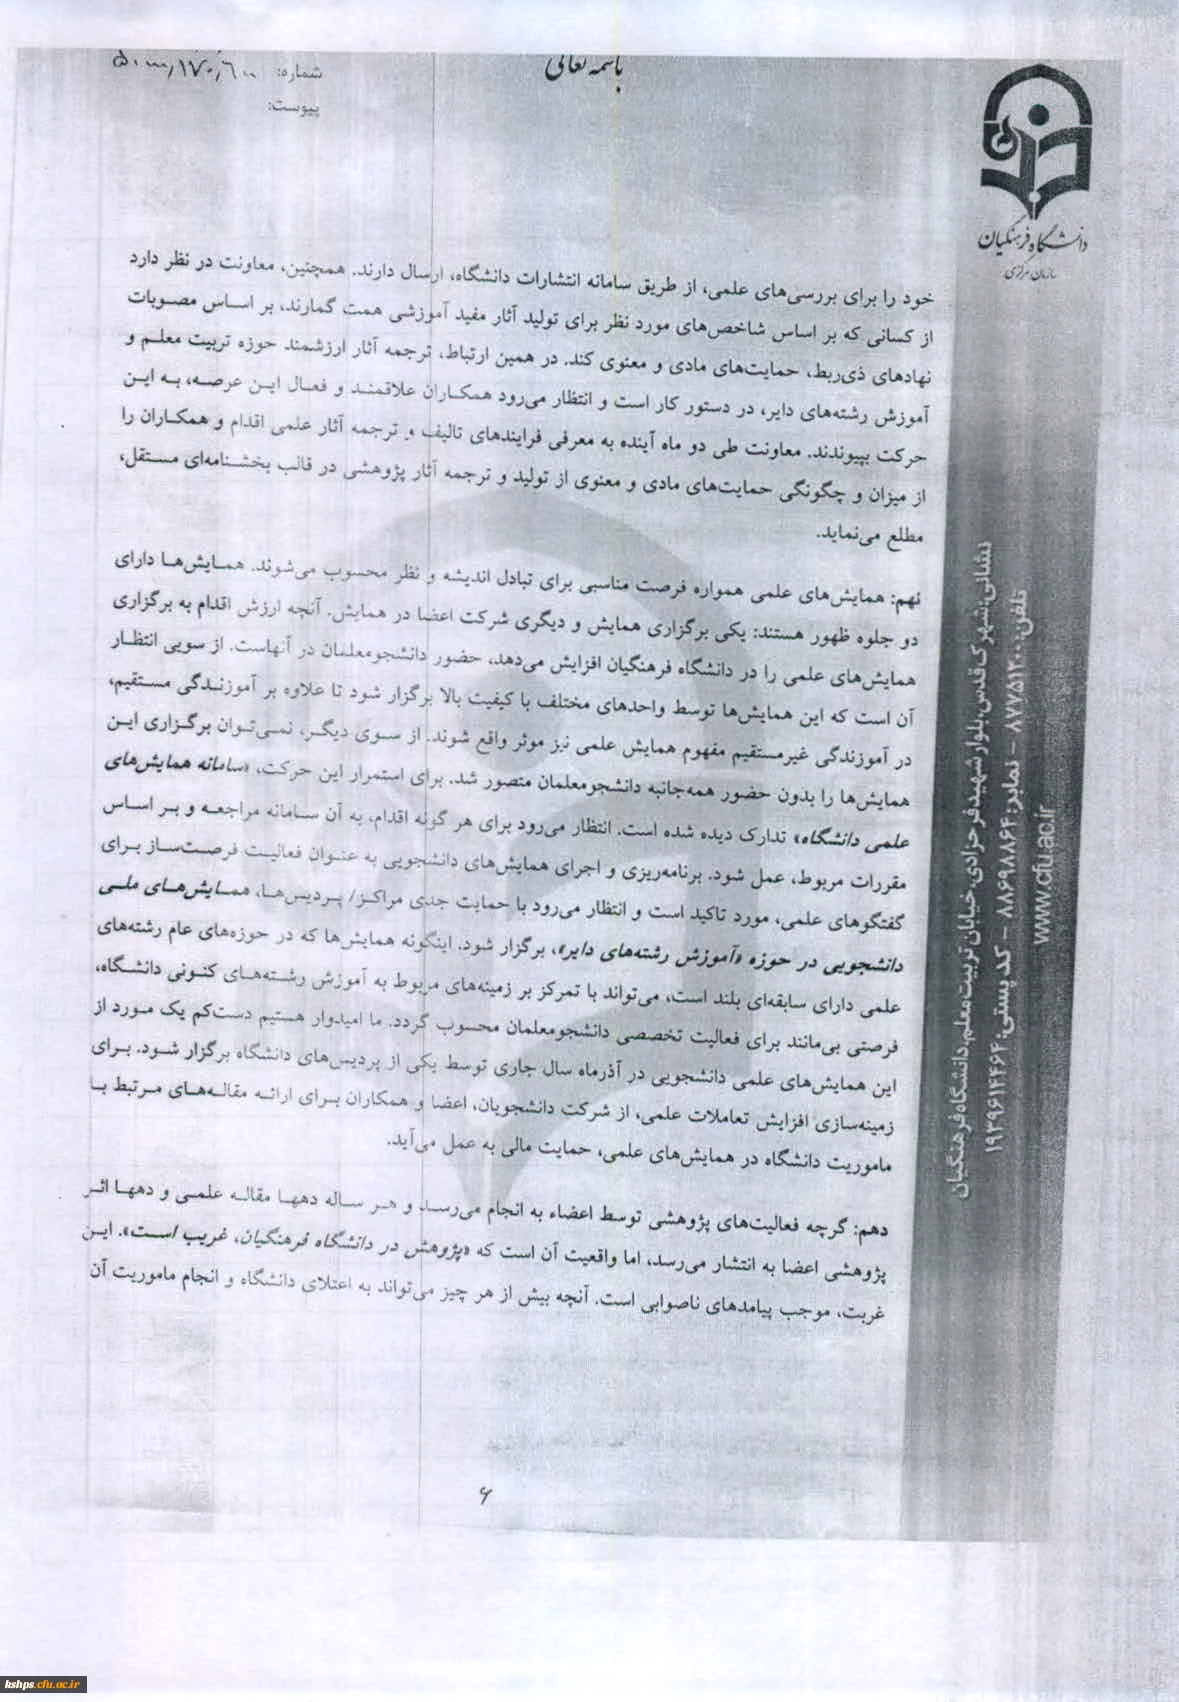 باسمه تعالی
شماره: ۵۰۰۰۰/۱۷۰/۶۰۰
پیوست:
دانشگاه فرهنگیان
سازمان مرکزی
خود را برای بررسی‌های علمی، از طریق سامانه انتشارات دانشگاه، ارسال دارند. همچنین، معاونت در نظر دارد
از کسانی که بر اساس شاخص‌های مورد نظر برای تولید آثار مفید آموزشی همت گمارند، بر اساس مصوبات
نهادهای ذی‌ربط، حمایت‌های مادی و معنوی کند. در همین ارتباط، ترجمه آثار ارزشمند حوزه تربیت معلم و
آموزش رشته‌های دایر، در دستور کار است و انتظار می‌رود همکاران علاقمند و فعال این عرصه، به این
حرکت بپیوندند. معاونت طی دو ماه آینده به معرفی فرایندهای تالیف و ترجمه آثار علمی اقدام و همکاران را
از میزان و چگونگی حمایت‌های مادی و معنوی از تولید و ترجمه آثار پژوهشی در قالب بخشنامه‌ای مستقل،
مطلع می‌نماید.
نهم: همایش‌های علمی همواره فرصت مناسبی برای تبادل اندیشه و نظر محسوب می‌شوند. همایش‌ها دارای
دو جلوه ظهور هستند: یکی برگزاری همایش و دیگری شرکت اعضا در همایش. آنچه ارزش اقدام به برگزاری
همایش‌های علمی را در دانشگاه فرهنگیان افزایش می‌دهد، حضور دانشجومعلمان در آنهاست. از سویی انتظار
آن است که این همایش‌ها توسط واحدهای مختلف با کیفیت بالا برگزار شود تا علاوه بر آموزندگی مستقیم،
در آموزندگی غیرمستقیم مفهوم همایش علمی نیز موثر واقع شوند. از سوی دیگر، نمی‌توان برگزاری این
همایش‌ها را بدون حضور همه‌جانبه دانشجومعلمان متصور شد. برای استمرار این حرکت، «سامانه همایش‌های
علمی دانشگاه» تدارک دیده شده است. انتظار می‌رود برای هر گونه اقدام، به آن سامانه مراجعه و بر اساس
مقررات مربوط، عمل شود. برنامه‌ریزی و اجرای همایش‌های دانشجویی به عنوان فعالیت فرصت‌ساز برای
گفتگوهای علمی، مورد تاکید است و انتظار می‌رود با حمایت جدی مراکز/ پردیس‌ها، همایش‌های ملی
دانشجویی در حوزه «آموزش رشته‌های دایر»، برگزار شود. اینگونه همایش‌ها که در حوزه‌های عام رشته‌های
علمی دارای سابقه‌ای بلند است، می‌تواند با تمرکز بر زمینه‌های مربوط به آموزش رشته‌های کنونی دانشگاه،
فرصتی بی‌مانند برای فعالیت تخصصی دانشجومعلمان محسوب گردد. ما امیدوار هستیم دست‌کم یک مورد از
این همایش‌های علمی دانشجویی در آذرماه سال جاری توسط یکی از پردیس‌های دانشگاه برگزار شود. برای
زمینه‌سازی افزایش تعاملات علمی، از شرکت دانشجویان، اعضا و همکاران برای ارائه مقاله‌های مرتبط با
ماموریت دانشگاه در همایش‌های علمی، حمایت مالی به عمل می‌آید.
دهم: گرچه فعالیت‌های پژوهشی توسط اعضاء به انجام می‌رسد و هر ساله دهها مقاله علمی و دهها اثر
پژوهشی اعضا به انتشار می‌رسد، اما واقعیت آن است که «پژوهش در دانشگاه فرهنگیان، غریب است». این
غربت، موجب پیامدهای ناصوابی است. آنچه بیش از هر چیز می‌تواند به اعتلای دانشگاه و انجام ماموریت آن
۶
نشانی: شهرک قدس، بلوار شهید فرحزادی، خیابان تربیت معلم، دانشگاه فرهنگیان
تلفن: ۸۷۷۵۱۲۰۰ - نمابر: ۸۸۶۹۸۸۶۴ - کد پستی: ۱۹۳۹۶۱۴۴۶۴
www.cfu.ac.ir
kshps.cfu.ac.ir